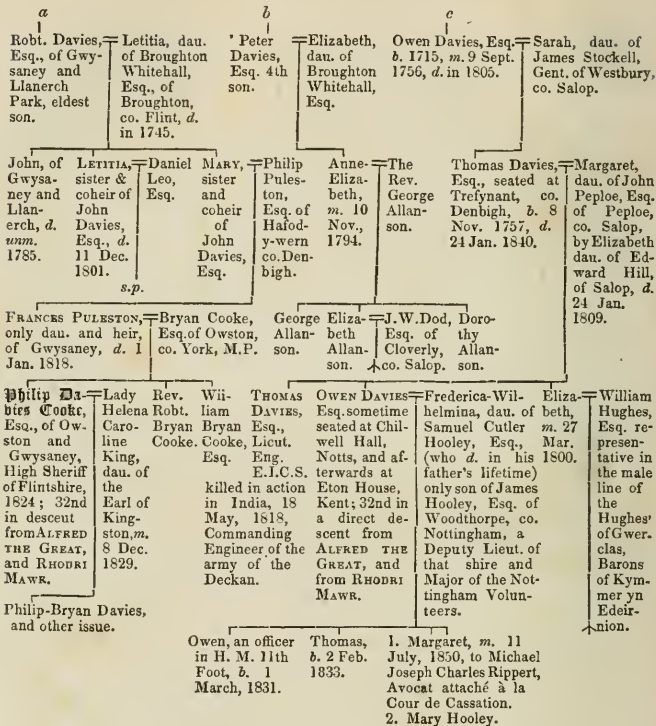 a
b
c
Robt. Davies,
Esq., of Gwy-
saney and
Llanerch
Park, eldest
son.
Letitia, dau.
of Broughton
Whitehall,
Esq., of
Broughton,
co. Flint, d.
in 1745.
Peter
Davies,
Esq. 4th
son.
Elizabeth,
dau. of
Broughton
Whitehall,
Esq.
Owen Davies, Esq.
b. 1715, m. 9 Sept.
1756, d. in 1805.
Sarah, dau. of
James Stockell,
Gent. of Westbury,
co. Salop.
John, of
Gwysa-
ney and
Llan-
erch, d.
unm.
1785.
LETITIA,
sister &
coheir of
John
Davies,
Esq., d.
11 Dec.
1801.
Daniel
Leo,
Esq.
s.p.
MARY,
sister
and
coheir
of
John
Davies,
Esq.
Philip
Pules-
ton,
Esq. of
Hafod-
y-wern
co. Den-
bigh.
Anne-
Eliza-
beth,
m. 10
Nov.,
1794.
The
Rev.
George
Allan-
son.
Thomas Davies,
Esq., seated at
Trefynant, co.
Denbigh, b. 8
Nov. 1757, d.
24 Jan. 1840.
Margaret,
dau. of John
Peploe, Esq.
of Peploe,
co. Salop,
by Elizabeth
dau. of Ed-
ward Hill,
of Salop, d.
24 Jan.
1809.
FRANCES PULESTON,
only dau. and heir,
of Gwysaney, d. 1
Jan. 1818.
Bryan Cooke,
Esq. of Owston,
co. York, M.P.
George
Allan-
son.
Eliza-
beth
Allan-
son.
J. W. Dod,
Esq. of
Cloverly,
co. Salop.
Doro-
thy
Allan-
son.
Philip Da-
vies Cooke,
Esq., of Ow-
ston and
Gwysaney,
High Sheriff
of Flintshire,
1824; 32nd
in descent
from ALFRED
THE GREAT,
and RHODRI
MAWR.
Lady
Helena
Caro-
line
King,
dau. of
the
Earl of
King-
ston, m.
8 Dec.
1829.
Rev.
Robt.
Bryan
Cooke.
Wil-
liam
Bryan
Cooke,
Esq.
THOMAS
DAVIES,
Esq.,
Lieut.
Eng.
E.I.C.S.
killed in action
in India, 18
May, 1818,
Commanding
Engineer of the
army of the
Deckan.
OWEN DAVIES
Esq. sometime
seated at Chil-
well Hall,
Notts, and af-
terwards at
Eton House,
Kent; 32nd in
a direct de-
scent from
ALFRED THE
GREAT, and
from RHODRI
MAWR.
Frederica-Wil-
helmina, dau. of
Samuel Cutler
Hooley, Esq.,
(who d. in his
father's lifetime)
only son of James
Hooley, Esq. of
Woodthorpe, co.
Nottingham, a
Deputy Lieut. of
that shire and
Major of the Not-
tingham Volun-
teers.
Eliza-
beth,
m. 27
Mar.
1800.
William
Hughes,
Esq. re-
presen-
tative in
the male
line of
the
Hughes'
of Gwer-
clas,
Barons
of Kym-
mer yn
Edeir-
nion.
Philip-Bryan Davies,
and other issue.
Owen, an officer
in H. M. 11th
Foot, b. 1
March, 1831.
Thomas,
b. 2 Feb.
1833.
1. Margaret, m. 11
July, 1850, to Michael
Joseph Charles Rippert,
Avocat attaché à la
Cour de Cassation.
2. Mary Hooley.